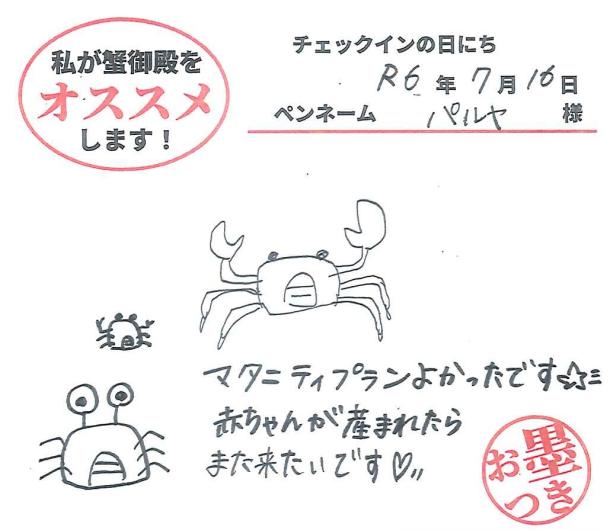 私が蟹御殿を
オススメ
します！
チェックインの日にち
R6年7月16日
ペンネーム パルヤ 様
マタニティプランよかったです☆ミ
赤ちゃんが産まれたら
また来たいです♡〃
お墨つき